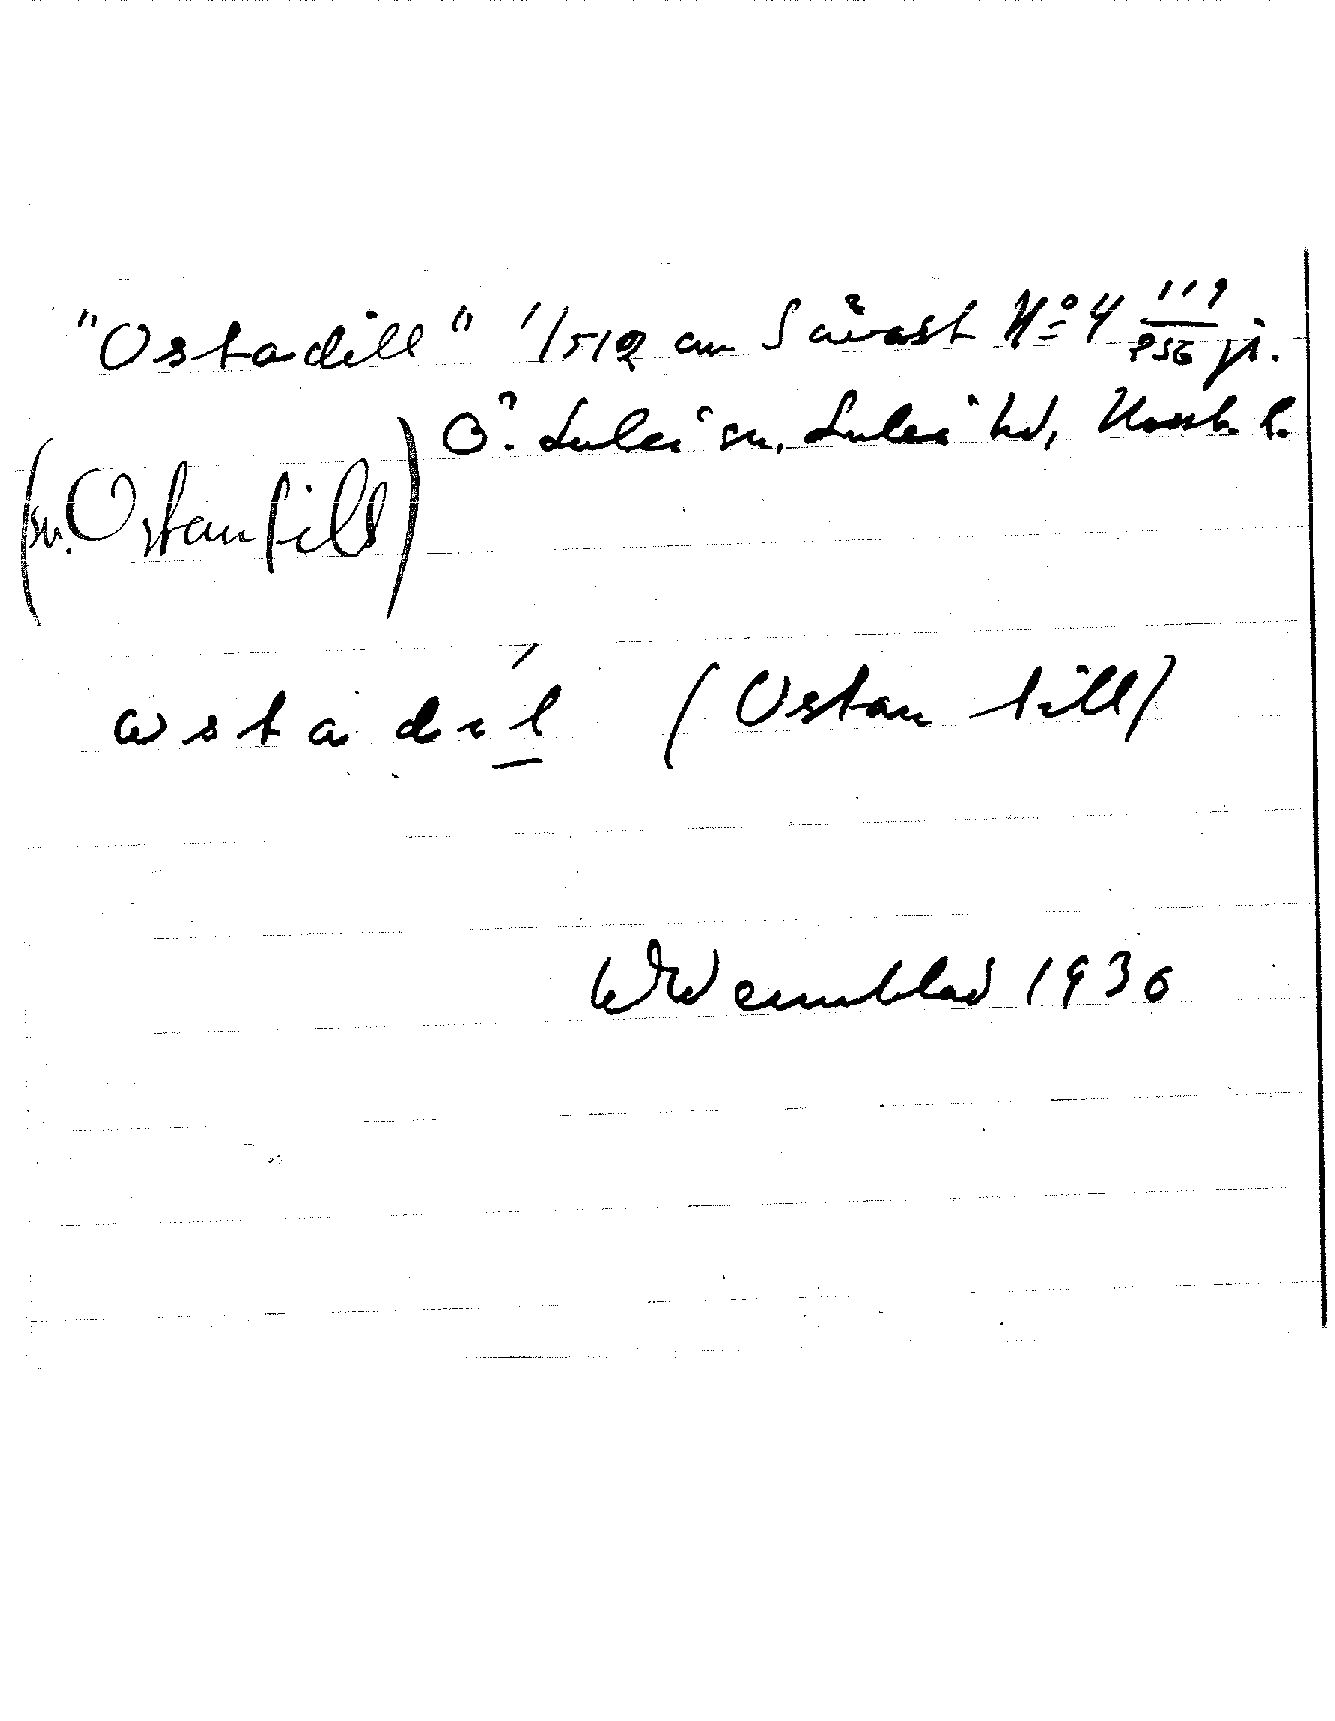 "Ostadill" 1/512 av Sävast No 4 119/256 ji.
Ö. Luleå sn, Luleå hd, Norrb. l.
(sv. Ostantill)
ω s t a d i l (Ostan till)
W Wennblad 1936